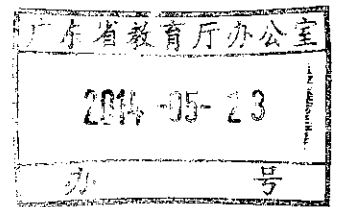 广东省教育厅办公室
2014-05-23
办 号